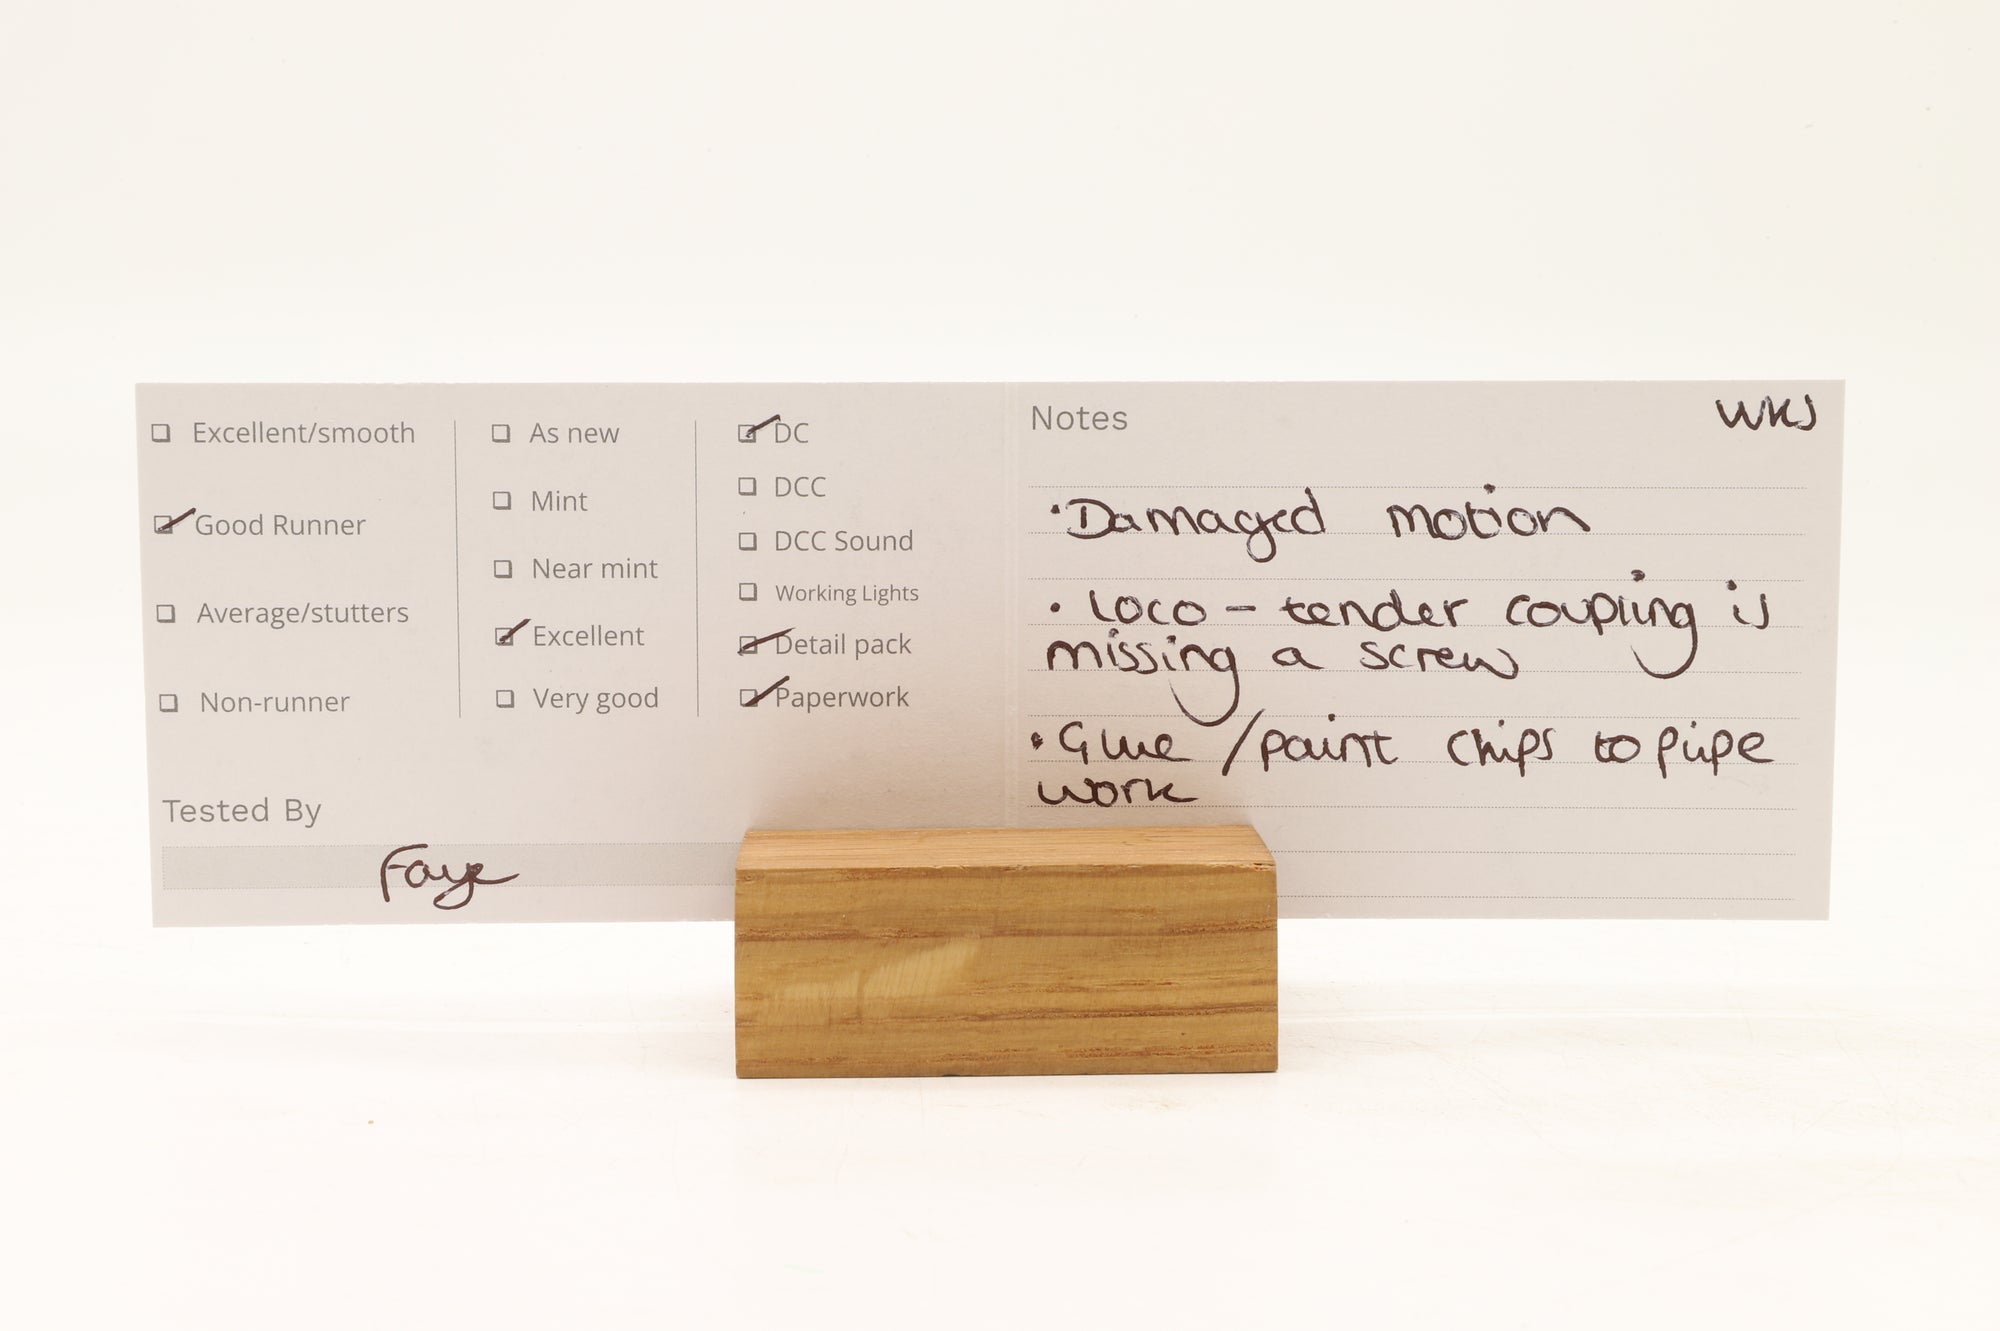 Excellent/smooth
Good Runner
Average/stutters
Non-runner
As new
Mint
Near mint
Excellent
Very good
DC
DCC
DCC Sound
Working Lights
Detail pack
Paperwork
Tested By
Faye
Notes
WKS
• Damaged motion
• Loco - tender coupling is
missing a screw
• Glue / paint chips to pipe
work